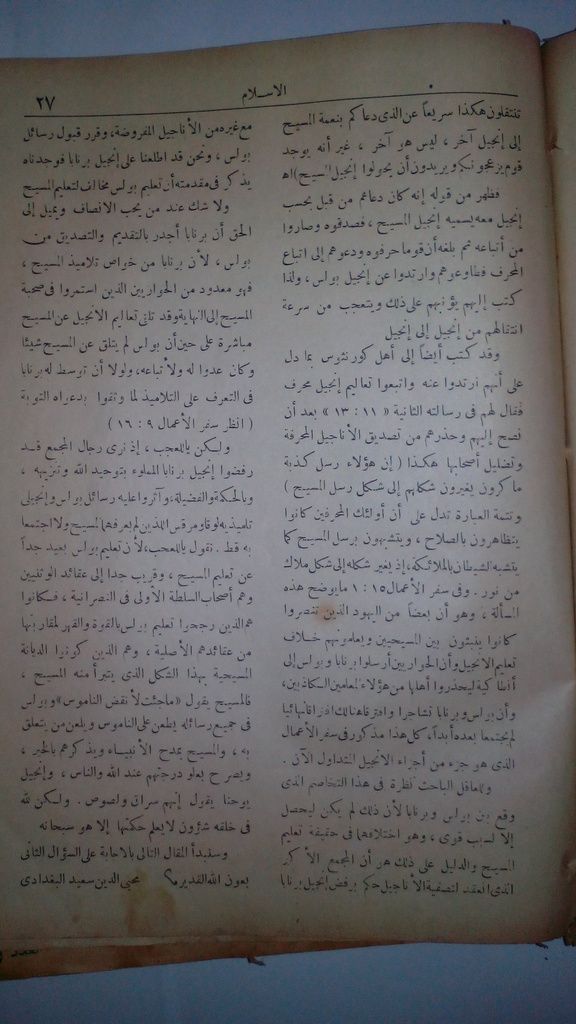 ٢٧
الاسلام
تنتقلون هكذا سريعاً عن الذى دعاكم بنعمة المسيح
إلى إنجيل آخر ، ليس هو آخر ، غير أنه يوجد
قوم يزعجونكم ويريدون أن يحولوا إنجيل المسيح) اه
فظهر من قوله إنه كان دعاهم من قبل بحسب
إنجيل معه يسميه إنجيل المسيح ، فصدقوه وصاروا
من أتباعه ثم بلغه أن قوما حرفوه ودعوهم إلى اتباع
المحرف فطاوعوهم وارتدوا عن إنجيل بولس ، ولذا
كتب إليهم يؤنبهم على ذلك ويتعجب من سرعة
انتقالهم من إنجيل إلى إنجيل
وقد كتب أيضاً إلى أهل كورنثوس بما دل
على أنهم ارتدوا عنه واتبعوا تعاليم إنجيل محرف
فقال لهم فى رسالته الثانية « ١١ : ١٣ » بعد أن
نصح إليهم وحذرهم من تصديق الأناجيل المحرفة
وتضليل أصحابها هكذا ( إن هؤلاء رسل كذبة
ماكرون يغيرون شكلهم إلى شكل رسل المسيح )
وتتمة العبارة تدل على أن أولئك المحرفين كانوا
يتظاهرون بالصلاح ، ويتشبهون برسل المسيح كما
يتشبه الشيطان بالملائكة، إذ يغير شكله إلى شكل ملاك
من نور . وفى سفر الأعمال ١٥ : ١ ما يوضح هذه
المسألة ، وهو أن بعضاً من اليهود الذين تنصروا
كانوا ينبثون بين المسيحيين ويعلمونهم خلاف
تعليم الانجيل وأن الحواريين أرسلوا برنابا وبولس إلى
أنطاكية ليحذروا أهلها من هؤلاء المعلمين الكاذبين،
وأن بولس وبرنابا تشاجرا وافترقا هنالك افتراقا نهائيا
لم يجتمعا بعده أبدا، كل هذا مذكور فى سفر الأعمال
الذى هو جزء من أجزاء الانجيل المتداول الآن .
وللعاقل الباحث نظرة فى هذا التخاصم الذى
وقع بين بولس وبرنابا لأن ذلك لم يكن ليحصل
إلا لسبب قوى ، وهو اختلافهما فى حقيقة تعليم
المسيح والدليل على ذلك هو أن المجمع الأكبر
الذى انعقد لتصفية الأناجيل حكم برفض إنجيل برنابا
مع غيره من الأناجيل المرفوضة، وقرر قبول رسائل
بولس ، ونحن قد اطلعنا على إنجيل برنابا فوجدناه
يذكر فى مقدمته أن تعليم بولس مخالف لتعليم المسيح
ولا شك عند من يحب الانصاف ويميل إلى
الحق أن برنابا أجدر بالتقديم والتصديق من
بولس ، لأن برنابا من خواص تلاميذ المسيح ،
فهو معدود من الحواريين الذين استمروا فى صحبة
المسيح إلى النهاية وقد تلقى تعاليم الانجيل عن المسيح
مباشرة على حين أن بولس لم يتلق عن المسيح شيئا
وكان عدوا له ولأتباعه، ولولا أن توسط له برنابا
فى التعرف على التلاميذ لما وثقوا بدعواه التوبة
( انظر سفر الأعمال ٩ : ١٦ )
ولكن ياللعجب ، إذ نرى رجال المجمع قد
رفضوا إنجيل برنابا المملوء بتوحيد الله وتنزيهه ،
وبالحكمة والفضيلة، وآثروا عليه رسائل بولس وإنجيلى
تلميذيه لوقا ومرقس اللذين لم يعرفهما المسيح ولا اجتمعا
به قط . نقول ياللعجب، لأن تعليم بولس بعيد جداً
عن تعليم المسيح ، وقريب جدا إلى عقائد الوثنيين
وهم أصحاب السلطة الأولى فى النصرانية ، فكانوا
هم الذين رجحوا تعليم بولس بالقوة والقهر لمقاربتها
من عقائدهم الأصلية ، وهم الذين كونوا الديانة
المسيحية بهذا الشكل الذى يتبرأ منه المسيح ،
فالمسيح يقول «ماجئت لأنقض الناموس» وبولس
فى جميع رسائله يطعن على الناموس ويلعن من يتعلق
به ، والمسيح يمدح الأنبياء ويذكرهم بالخير ،
ويصرح بعلو درجتهم عند الله والناس ، وإنجيل
يوحنا يقول إنهم سراق ولصوص . ولكن لله
فى خلقه شؤون لا يعلم حكمتها إلا هو سبحانه
وسنبدأ المقال التالى بالاجابة على السؤال الثانى
بعون الله القدير محيى الدين سعيد البغدادى